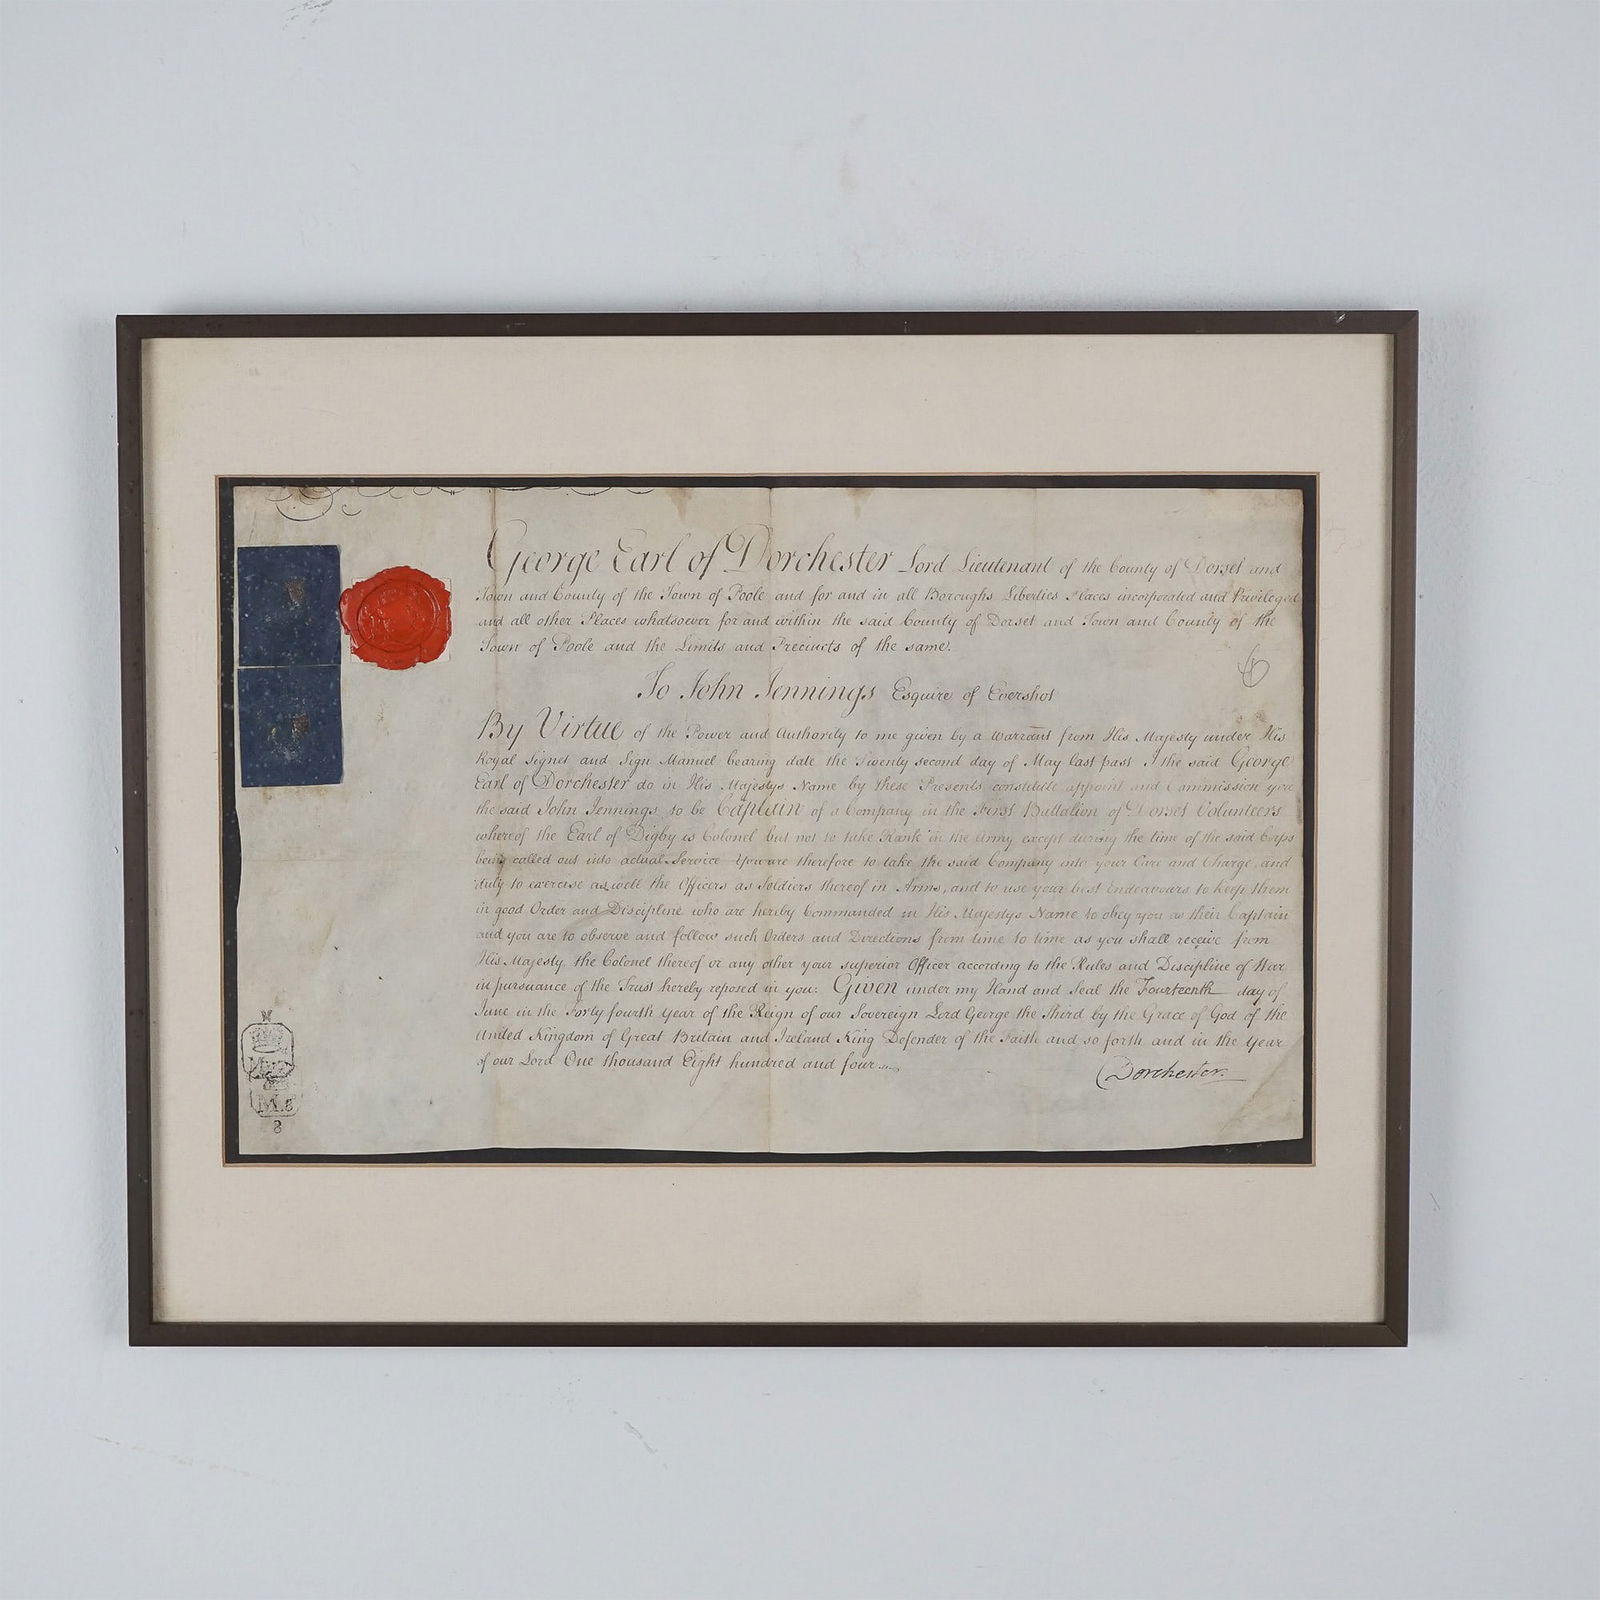 George Earl of Dorchester Lord Lieutenant of the County of Dorset and
Town and County of the Town of Poole and for and in all Boroughs Liberties Places incorporated and Privileged
and all other Places whatsoever for and within the said County of Dorset and Town and County of the
Town of Poole and the Limits and Precincts of the same.
To John Jennings Esquire of Evershot
By Virtue of the Power and Authority to me given by a Warrant from His Majesty under His
Royal Signet and Sign Manuel bearing date the Twenty second day of May last past I the said George
Earl of Dorchester do in His Majestys Name by these Presents constitute appoint and Commission you
the said John Jennings to be Captain of a Company in the First Battalion of Dorset Volunteers
whereof the Earl of Digby is Colonel but not to take Rank in the Army except during the time of the said Corps
being called out into actual Service You are therefore to take the said Company into your Care and Charge, and
duly to exercise as well the Officers as Soldiers thereof in Arms, and to use your best Endeavours to keep them
in good Order and Discipline who are hereby Commanded in His Majestys Name to obey you as their Captain
and you are to observe and follow such Orders and Directions from time to time as you shall receive from
His Majesty, the Colonel thereof or any other your superior Officer according to the Rules and Discipline of War
in pursuance of the Trust hereby reposed in you: Given under my Hand and Seal the Fourteenth day of
June in the Forty fourth Year of the Reign of our Sovereign Lord George the Third by the Grace of God of the
United Kingdom of Great Britain and Ireland King Defender of the Faith and so forth and in the Year
of our Lord One thousand Eight hundred and four
Dorchester.
8